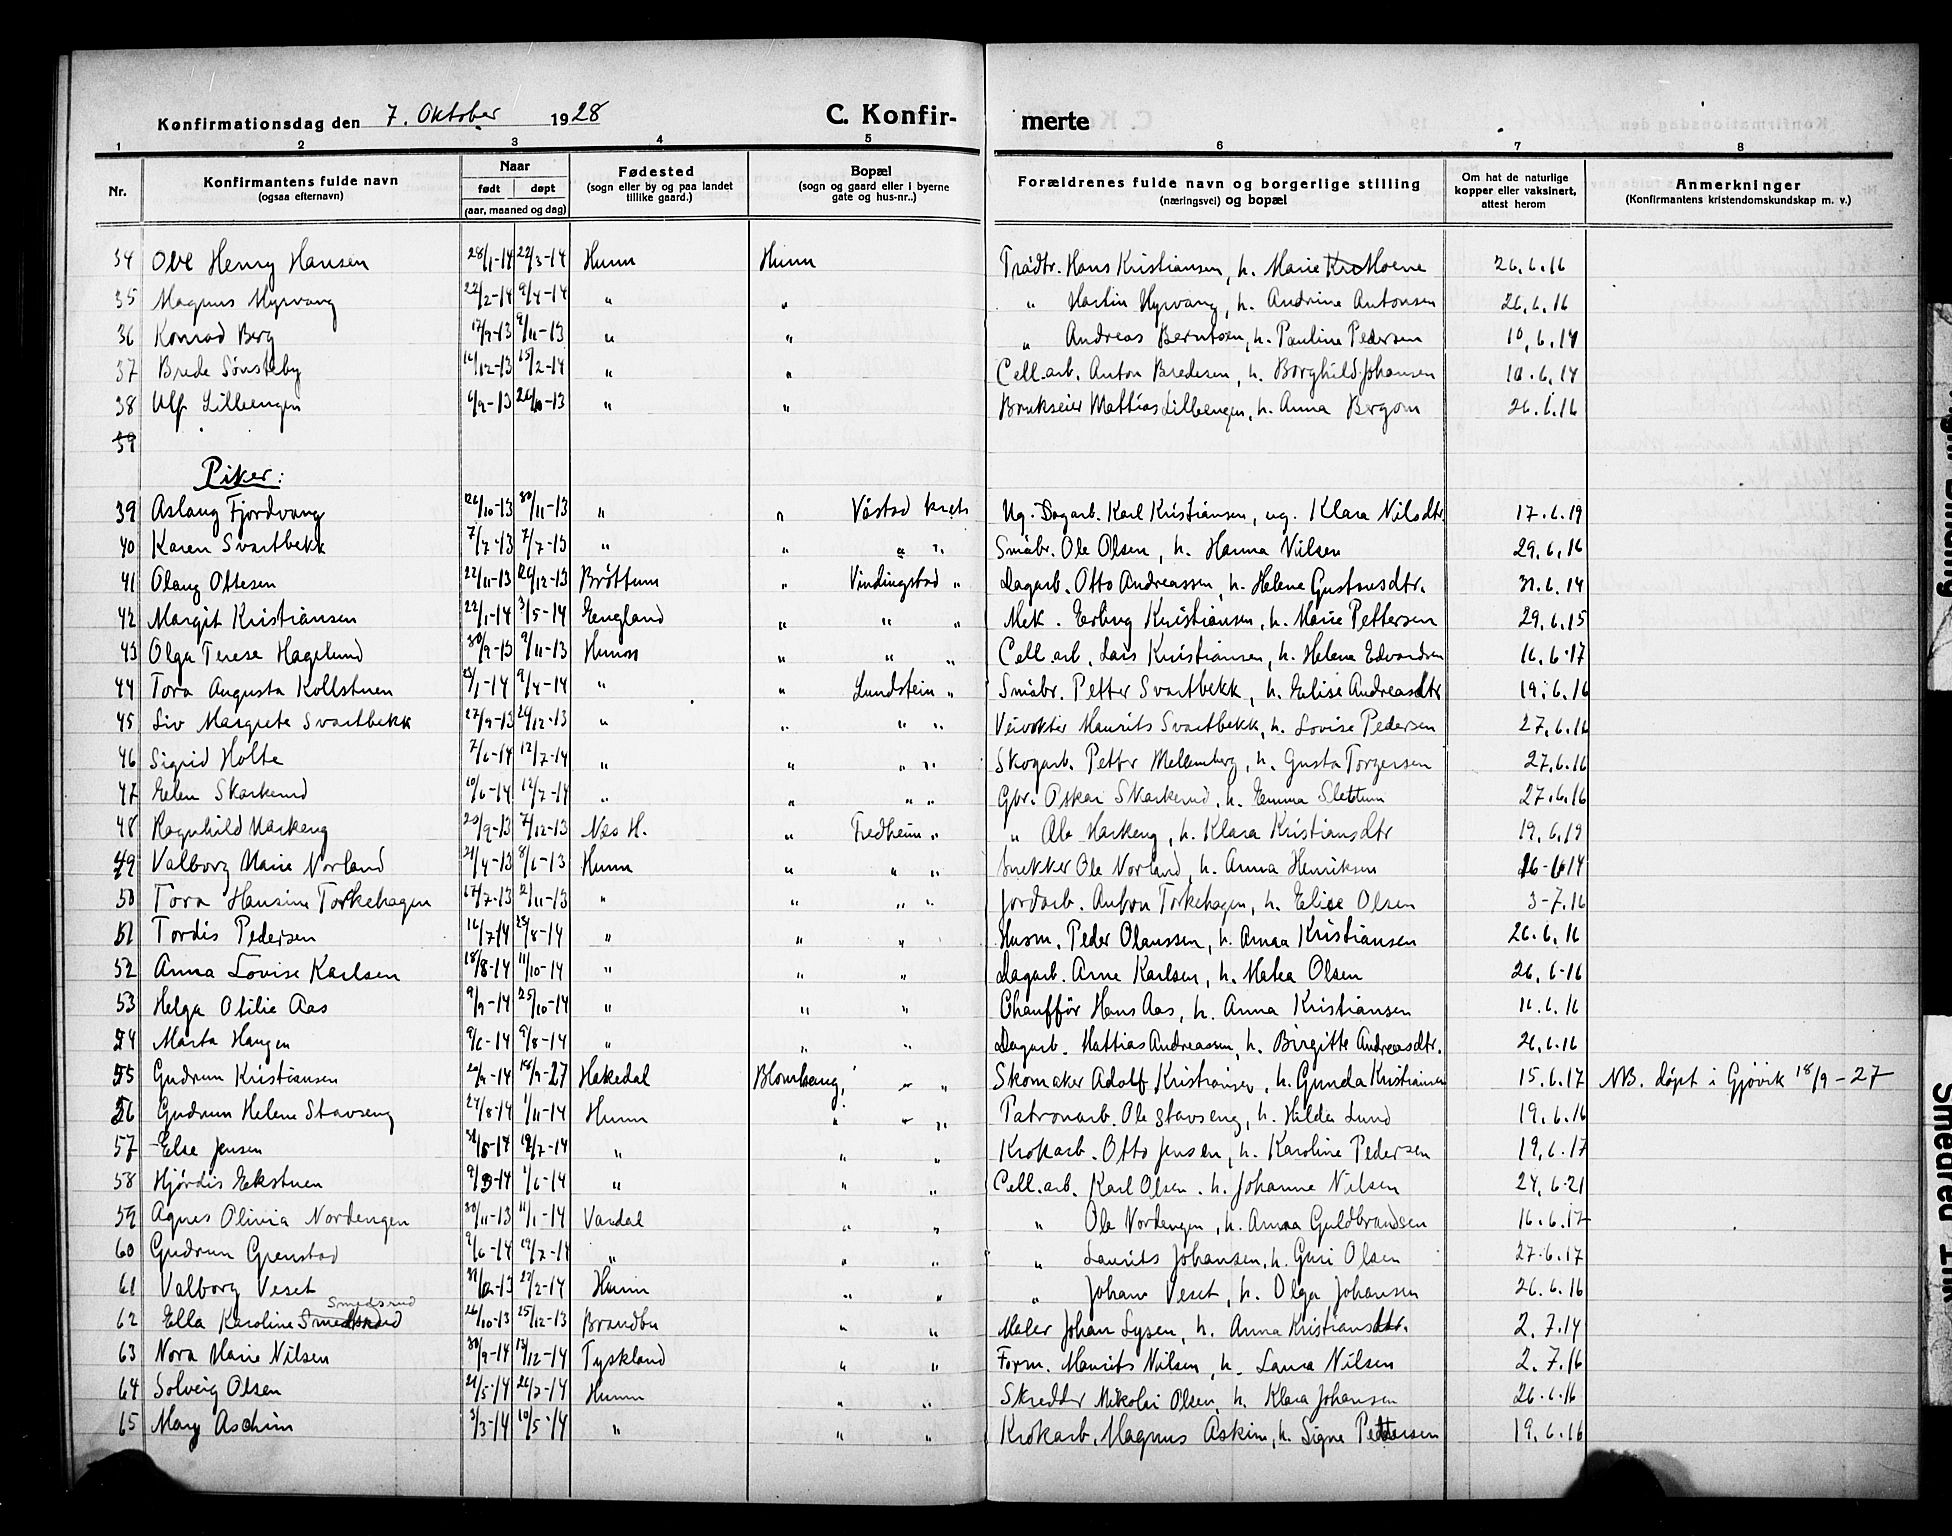 Konfirmationsdag den 7. Oktober 1928 C. Konfir- merte
1 2 3 4 5 6 7 8
Nr. Konfirmantens fulde navn (ogsaa efternavn) Naar født døpt (aar, maaned og dag) Fødested (sogn eller by og paa landet tillike gaard.) Bopæl (sogn og gaard eller i byerne gate og hus-nr..) Forældrenes fulde navn og borgerlige stilling (næringsvei) og bopæl Om hat de naturlige kopper eller vaksinert, attest herom Anmerkninger (Konfirmantens kristendomskundskap m. v.)
34 Ove Henry Hansen 28/1-14 22/3-14 Hunn Hunn Trådtr. Hans Kristiansen, h. Marie Moene 26.6.16
35 Magnus Myrvang 22/2-14 9/4-14 " " " Martin Myrvang, h. Andrine Antonsen 26.6.16
36 Konrad Berg 17/9-13 9/11-13 " " " Andreas Berntsen, h. Pauline Pedersen 10.6.14
37 Brede Sønsteby 16/12-13 15/2-14 " " Cell.arb. Anton Bredesen, h. Borghild Johansen 10.6.14
38 Ulf Lilleengen 6/9-13 26/10-13 " " Brukseier Mattias Lilleengen, h. Anna Bergom 26.6.16
39
Piker:
39 Aslaug Fjordvang 26/10-13 30/11-13 " " Våstad krets Ug. Dagarb. Karl Kristiansen, ug. Klara Nilsdtr. 17.6.19
40 Karen Svartbekk 7/7-13 " " " " Småbr. Ole Olsen, h. Hanna Nilsen 29.6.16
41 Olaug Ottesen 22/11-13 26/12-13 Brøttum " Vindingstad " Dagarb. Otto Andreassen, h. Helene Gustavsdtr. 6.14
42 Margit Kristiansen 22/1-14 3/5-14 England " " " Mek. Erling Kristiansen, h. Marie Pettersen 29.6.15
43 Olga Terese Hagelund 30/9-13 9/11-13 Hunn " " " Cell.arb. Lars Kristiansen, h. Helene Edvardsen 16.6.17
44 Tora Augusta Kollstuen 25/1-14 9/4-14 " " Lundstein " Småbr. Petter Svartbekk, h. Elise Andreasdtr 19.6.16
45 Liv Margrete Svartbekk 27/9-13 26/12-13 " " " " Veivokter Maurits Svartbekk, h. Lovise Pedersen 27.6.16
46 Sigrid Holte 7/6-14 12/7-14 " " " " Skogarb. Petter Mellemberg, h. Gusta Torgersen 27.6.16
47 Elen Skarkerud 10/6-14 12/7-14 " " " " Gbr. Oskar Skarkerud, h. Emma Slettum 27.6.16
48 Ragnhild Markeng 20/9-13 7/12-13 Nes H. " Fredheim " " Ole Markeng, h. Klara Kristiansdtr 19.6.19
49 Valborg Marie Norland 21/4-13 8/6-13 Hunn " " " Snekker Ole Norland, h. Anna Henriksen 26-6-14
50 Tora Hansine Torkehagen 17/7-13 2/11-13 " " " " Jordarb. Anton Torkehagen, h. Elise Olsen 3-7.16
51 Tordis Pedersen 16/7-14 23/8-14 " " " Husm. Peder Olaussen, h. Anna Kristiansen 26.6.16
52 Anna Lovise Karlsen 18/8-14 11/10-14 " " " Dagarb. Arne Karlsen, h. Matea Olsen 26.6-16
53 Helga Otilie Aas 9/9-14 25/10-14 " " " Chauffør Hans Aas, h. Anna Kristiansen 16.6.16
54 Marta Haugen 9/6-14 9/8-14 " " " Dagarb. Mattias Andreassen, h. Birgitte Andreasdtr. 26.6.16
55 Gudrun Kristiansen 20/9-14 18/9-27 Hakedal Blomhaug, " " Skomaker Adolf Kristiansen, h. Gunda Kristiansen 15.6.17 NB. døpt i Gjøvik 18/9-27
56 Gudrun Helene Stavseng 24/8-14 1/11-14 Hunn " " " Patronarb. Ole Stavseng, h. Hilda Lund 19.6.16
57 Else Jensen 31/5-14 19/7-14 " " " Krokarb. Otto Jensen, h. Karoline Pedersen 19.6.17
58 Hjørdis Ekstuen 9/3-14 1/6-14 " " " Cell.arb. Karl Olsen. h. Johanne Nilsen 24.6-21
59 Agnes Olivia Nordengen 30/11-13 11/1-14 Vardal " " " Ole Nordengen, h. Anna Guldbrandsen 16.6.17
60 Gudrun Grenstad 9/6-14 19/7-14 " " " " Laurits Johansen, h. Guri Olsen 27.6.17
61 Valborg Veset 31/12-13 22/2-14 Hunn " " " Johan Veset, h. Olga Johansen 26.6.16
Smedsrud
62 Ella Karoline Smedsrud 26/10-13 25/12-13 Brandbu " " Maler Johan Lysen, h. Anna Kristiansdtr. 2.7.14
63 Nora Marie Nilsen 30/9-14 13/12-14 Tyskland " " Form. Maurits Nilsen, h. Laura Nilsen 2.7.16
64 Solveig Olsen 21/5-14 26/7-14 Hunn " " Skredder Nikolai Olsen, h. Klara Johansen 26.6.16
65 Mary Aschim 3/3-14 10/5-14 " " " Krokarb. Magnus Askim, h. Signe Pettersen 19.6.16
Smeared Ink